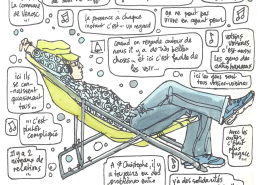 la commune
de
la présence à chaque
instant c'est un regard
on ne peut pas
vivre en ayant peur.
quand on regarde autour de
nous il y a de très belles
choses et il est facile de
les voir
voisins
voisines
est aussi
les gens des
ici les gens sont
tous voisins-voisines
ici ils
se con-
naissent
quasiment
tous...
... c'est
plutôt
compliqué
Il y a 2
de
relations...
A St Christophe, il y
a toujours eu des
avec les
autres,
c'est
plus
y a des solidarités